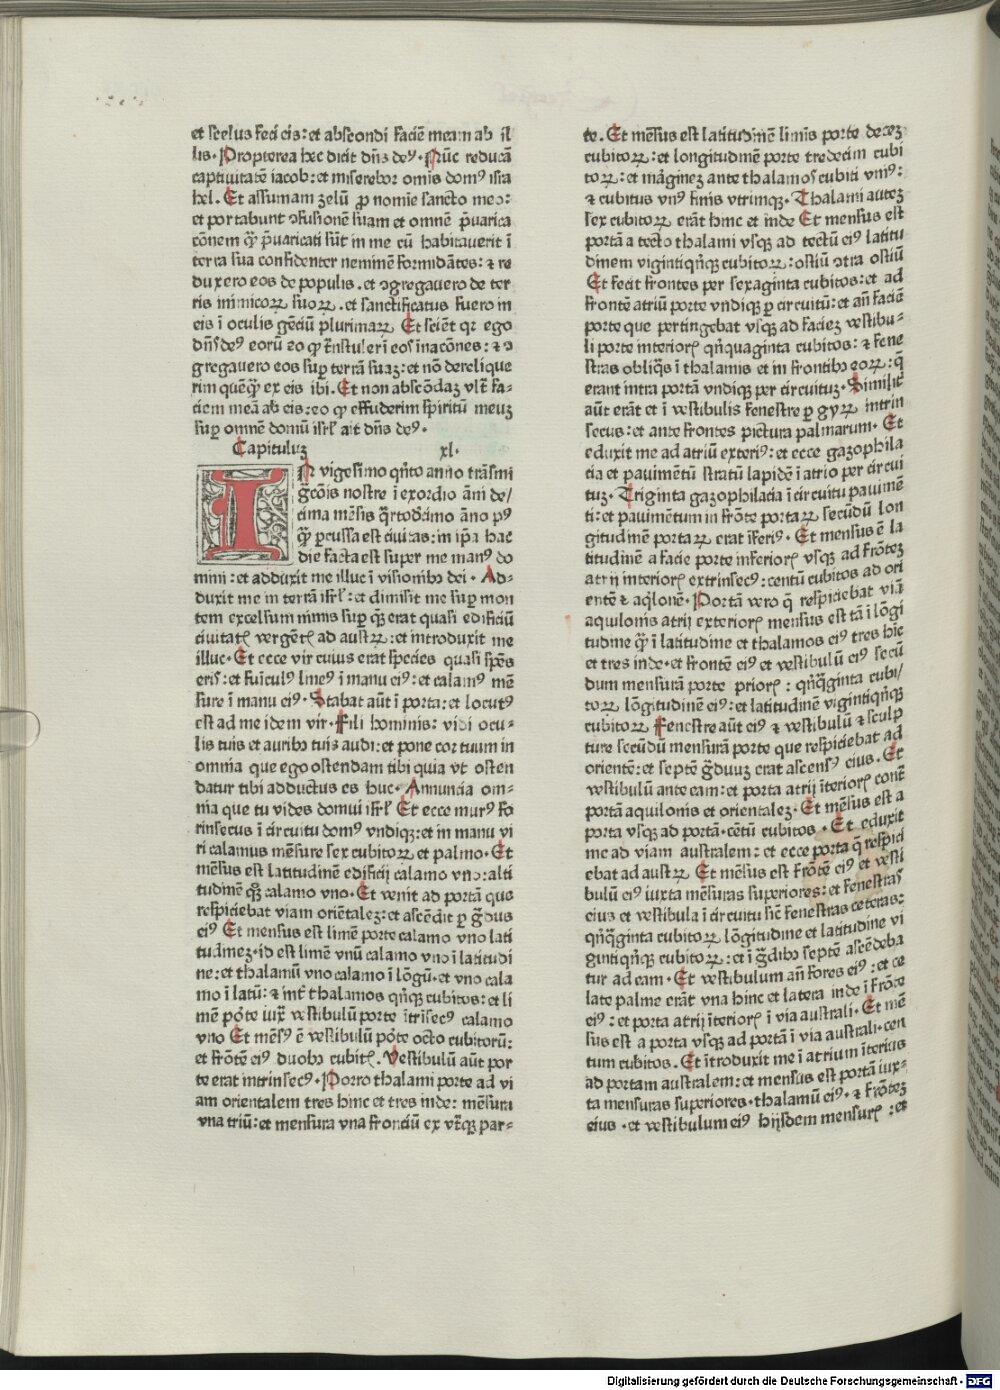 et scelus feci eis: et abscondi faciē meam ab il
lis. Propterea hec dicit dñs deꝰ. Nūc reducā
captiuitatē iacob: et miserebor omīs domꝰ isra
hel. Et assumam zelū ꝓ nomīe sancto meo:
et portabunt ꝯfusionē suam et omnē p̄uarica
cōnem qͣ p̄uaricati sūt in me cū habitauerit ī
terra sua confidenter neminē formidātes: ⁊ re
duxero eos de populis. et ꝯgregauero de ter
ris inimicoꝝ suoꝝ. et sanctificatus fuero in
eis ī oculis gēciū plurimaꝝ Et sciēt qꝛ ego
dñs deꝰ eorū eo ꝙ trāstulerī eos ī nacōnes: ⁊ ꝯ
gregauero eos suꝑ terrā suaꝫ: et nō derelique
rim quēqͣ ex eis ibi. Et non abscōdaꝫ vltͣ fa⸗
ciem meā ab eis: eo ꝙ effuderim spiritū meuꝫ
suꝑ omnē domū isrl̄ ait dñs deꝰ.
Capituluꝫ xl.
IN vigesimo qͥnto anno trāsmi
gͣcōis nostre ī exordio āni de/
cima mēsis qͣrtodecimo āno pꝰ
qͣ ꝑcussa est ciuitas: in ip̄a hac
die facta est super me manꝰ do
mini: et adduxit me illuc ī visionibꝰ dei. Ad⸗
duxit me in terrā isrl̄: et dimisit me suꝑ mon
tem excelsum nimis suꝑ qͣ erat quasi edificiū
ciuitatꝭ vergētꝭ ad austꝝ: et introduxit me
illuc. Et ecce vir cuius erat species quasi spēs
erꝭ: et fuīculꝰ lineꝰ ī manu eiꝰ: et calamꝰ mē
sure ī manu eiꝰ. Stabat aūt ī porta: et locutꝰ
est ad me idem vir. Fili hominis: vidi ocu⸗
lis tuis et auribꝰ tuis audi: et pone cor tuum in
omnia que ego ostendam tibi quia vt osten
datur tibi adductus es huc. Annuncia om⸗
nia que tu vides domui isrl̄ Et ecce murꝰ fo
rinsecus ī circuitu domꝰ vndiqꝫ: et in manu vi
ri calamus mēsure sex cubitoꝝ et palmo. Et
mēsus est latitudinē edificij calamo vno: alti
tudinē qͦꝫ calamo vno. Et venit ad portā que
respiciebat viam oriētalez: et ascēdit ꝑ gͣdus
eiꝰ Et mensus est limē porte calamo vno lati
tudinez. id est limē vnū calamo vno ī latitudi
ne: et thalamū vno calamo ī lōgū: et vno cala
mo ī latū: ⁊ intͣ thalamos qͥnqꝫ cubitos: et li
mē porte iuxͣ vestibulū porte ītrīsecꝰ calamo
vno Et mēsꝰ ē vestibulū porte octo cubitorū:
et frōtē eiꝰ duobꝰ cubitꝭ. Vestibulū aūt por
te erat intrinsecꝰ. Porro thalami porte ad vi
am orientalem tres hinc et tres inde: mēsura
vna triū: et mensura vna fronciū ex vtͣqꝫ par⸗
te. Et mēsus est latitudinē liminis porte deceꝫ
cubitoꝝ: et longitudinē porte tredecim cubi
toꝝ: et mārginez ante thalamos cubiti vniꝰ:
⁊ cubitus vnꝰ finis vtrimqꝫ. Thalami autez
sex cubitoꝝ erāt hinc et inde Et mensus est
portā a tecto thalami vsqꝫ ad tectū eiꝰ latitu
dinem vigintiqͥnqꝫ cubitoꝝ: ostiū ꝯtra ostiū
Et fecit frontes per sexaginta cubitos: et ad
frontē atriū porte vndiqꝫ ꝑ circuitū: et an̄ faciē
porte que pertingebat vsqꝫ ad faciez vestibu⸗
li porte interiorꝭ qͥnquaginta cubitos: ⁊ fene
stras obliqͣs ī thalamis et in frontibꝰ eoꝝ: q̄
erant intra portā vndiqꝫ per circuituꝫ. Similitͣ
aūt erāt et ī vestibulis fenestre ꝑ gyꝝ intrin
secus: et ante frontes pictura palmarum. Et
eduxit me ad atriū exteriꝰ: et ecce gazophila
cia et pauimētū stratū lapidē ī atrio per circui
tuꝫ. Triginta gazophilacia ī circuitu pauimē
ti: et pauimētum in frōte portaꝝ secūdū lon
gitudinē portaꝝ erat īferiꝰ. Et mensus ē la
titudinē a facie porte inferiorꝭ vsqꝫ ad frōtez
atrij interiorꝭ extrinsecꝰ: centū cubitos ad ori
entē ⁊ aqͥlonē. Portā vero q̄ respiciebat viā
aquilonis atrij exteriorꝭ mensus est tā ī lōgi
tudine qͣ ī latitudine et thalamos eiꝰ tres hīc
et tres inde. et frontē eiꝰ et vestibulū eiꝰ secū
dum mensurā porte priorꝭ: qͥnqͣginta cubi/
toꝝ lōgitudinē eiꝰ: et latitudinē vigintiqͥnqꝫ
cubitoꝝ Fenestre aūt eiꝰ ⁊ vestibulū ⁊ sculp
ture secūdū mensurā porte que respiciebat ad
orientē: et septē gͣduuꝫ erat ascensꝰ eius. Et
vestibulū ante eam: et porta atrij īteriorꝭ contͣ
portā aquilonis et orientalez. Et mēsus est a
porta vsqꝫ ad portā. cētū cubitos. Et eduxit
me ad viam australem: et ecce porta q̄ respici
ebat ad austꝝ Et mēsus est frōtē eiꝰ et vesti
bulū eiꝰ iuxta mēsuras superiores: et fenestras
eius et vestibula ī circuitu sic̄ fenestras ceteras:
qͥnqͣginta cubitoꝝ lōgitudine et latitudine vi
gintiqͥnqꝫ cubitoꝝ: et ī gͣdibꝰ septē ascēdeba
tur ad eam. Et vestibulum an̄ fores eiꝰ: et ce
late palme erāt vna hinc et latera inde ī frōte
eiꝰ: et porta atrij īteriorꝭ ī via australi. Et mē
sus est a porta vsqꝫ ad portā ī via australi. cen
tum cubitos. Et ītroduxit me ī atrium īterius
ad portam australem: et mensus est portā iux⸗
ta mensuras superiores. thalamū eiꝰ. ⁊ frōtez
eius. et vestibulum eiꝰ hijsdem mensurꝭ: et
Digitalisierung gefördert durch die Deutsche Forschungsgemeinschaft - DFG